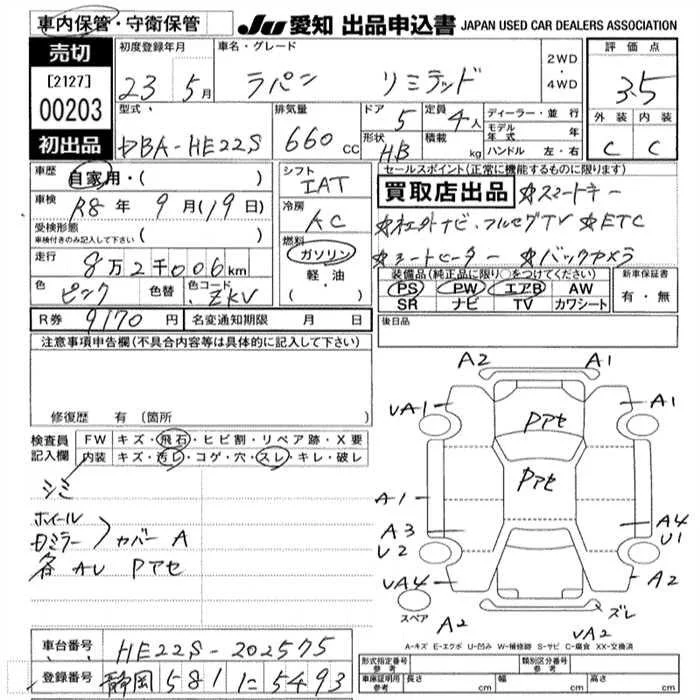 車内保管・守衛保管
JU 愛知 出品申込書 JAPAN USED CAR DEALERS ASSOCIATION
売切
[2127]
00203
初出品
初度登録年月
23 5月
車名・グレード
ラパン リミテッド
2WD
・
4WD
評価点
3.5
外装 内装
C C
型式
DBA-HE22S
排気量
660 cc
ドア 5
定員 4人
形状 H.B
積載 kg
ディーラー・並行
モデル年式 年
ハンドル 左・右
車歴
自家用・( )
車検
R8年 9月(19日)
受検形態
車検付きのみ記入して下さい ( )
走行
8万2千006km
色 ピンク
色替
色コード ZKV
シフト
IAT
冷房
AC
燃料
ガソリン
軽・油
( )
セールスポイント(正常に機能するものに限ります)
買取店出品 ☆スマートキー
☆社外ナビ・フルセグTV ☆ETC
☆シートヒーター ☆バックカメラ
装備品(純正品に限り○をつけてください)
PS PW エアB AW
SR ナビ TV カワシート
新車保証書
有・無
R券 9170円
名変通知期限 月 日
後日品
注意事項申告欄(不具合内容等は具体的に記入して下さい)
修復歴 有(箇所
検査員
記入欄
FW キズ・飛石・ヒビ割・リペア跡・X要
内装 キズ・汚レ・コゲ・穴・スレ・キレ・破レ
シミ
ホイール
ドミラー
カバー A
各 AU Pアセ
A2 A1
UA1 Pアセ A1
Pアセ
A1
A3 A4
U2 U1
UA4 A2
スペア
A2 ズレ
UA2
A-キズ E-エクボ U-凹み W-補修跡 S-サビ C-腐食 XX-交換済
車台番号 HE22S-202575
登録番号 静岡 581 に 5493
形式指定番号
参考
類別区分番号
参考
車庫証明用
参考
長さ cm 幅 cm 高さ cm